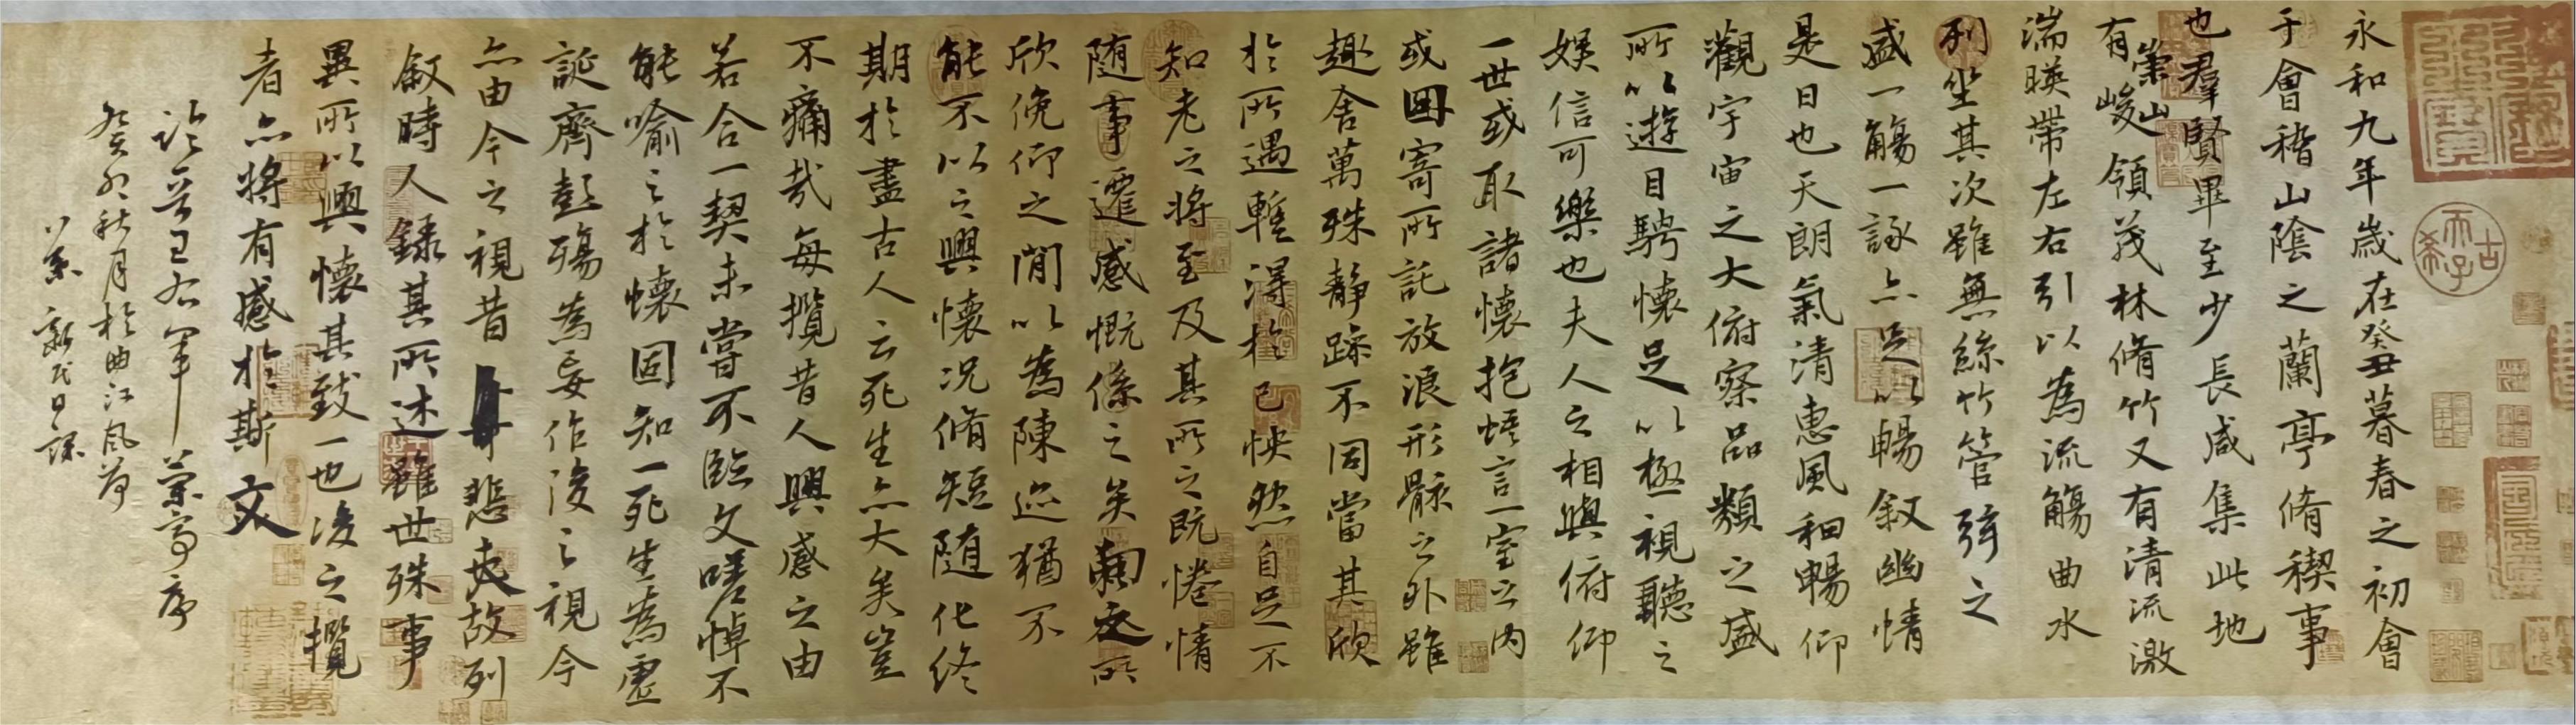 永和九年歲在癸丑暮春之初會
于會稽山陰之蘭亭脩稧事
也羣賢畢至少長咸集此地
有崇山峻領茂林脩竹又有清流激
湍暎帶左右引以為流觴曲水
列坐其次雖無絲竹管弦之
盛一觴一詠亦足以暢叙幽情
是日也天朗氣清惠風和暢仰
觀宇宙之大俯察品類之盛
所以遊目騁懷足以極視聽之
娛信可樂也夫人之相與俯仰
一世或取諸懷抱悟言一室之內
或因寄所託放浪形骸之外雖
趣舍萬殊靜躁不同當其欣
於所遇暫得於己怏然自足不
知老之將至及其所之既惓情
隨事遷感慨係之矣向之所
欣俛仰之閒以為陳迹猶不
能不以之興懷況脩短隨化終
期於盡古人云死生亦大矣豈
不痛哉每攬昔人興感之由
若合一契未嘗不臨文嗟悼不
能喻之於懷固知一死生為虛
誕齊彭殤為妄作後之視今
亦由今之視昔悲夫故列
叙時人錄其所述雖世殊事
異所以興懷其致一也後之攬
者亦將有感於斯文
臨晉王右軍蘭亭序
癸卯秋月於曲江風荷
古希天子